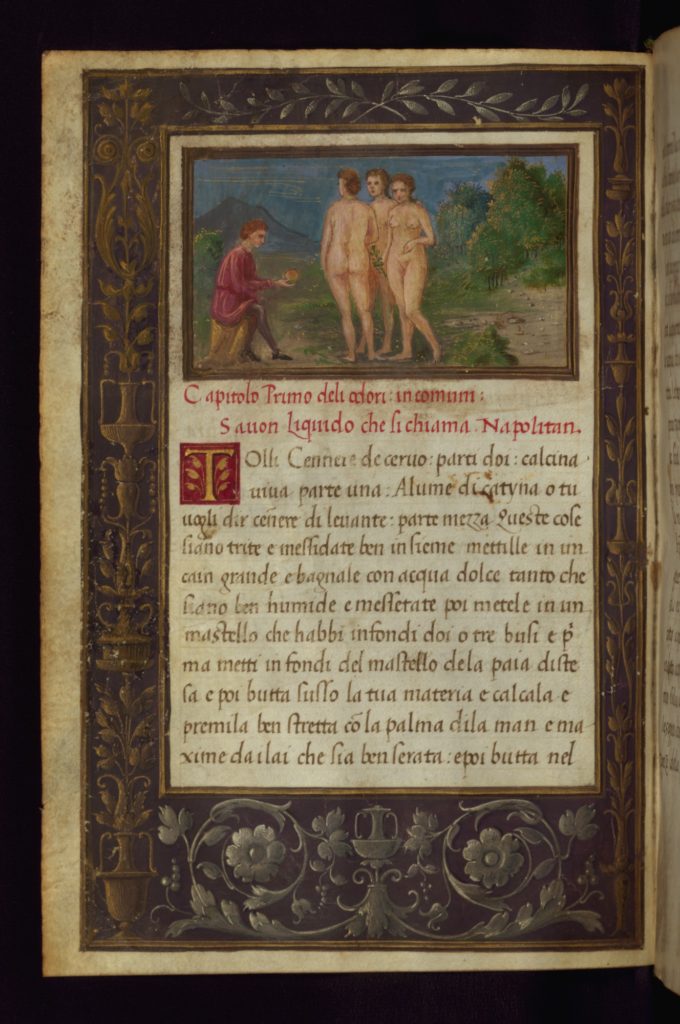 Capitolo Primo deli odori: in comuni:
Savon Liquido che si chiama Napolitan.
TOlli Cennere de cervo: parti doi: calcina
viva parte una: Alume di catyna o tu
vogli dir cenere di levante: parte mezza Queste cose
siano trite e messidate ben insieme mettille in un
cain grande e bagnale con acqua dolce tanto che
siano ben humide e messetate poi metele in un
mastello che habbi in fondi doi o tre busi e p̄
ma metti in fondi del mastello dela paia diste
sa e poi butta susso la tua materia e calcala e
premila ben stretta cō la palma dila man e ma
xime da i lai che sia ben serata: e poi butta nel